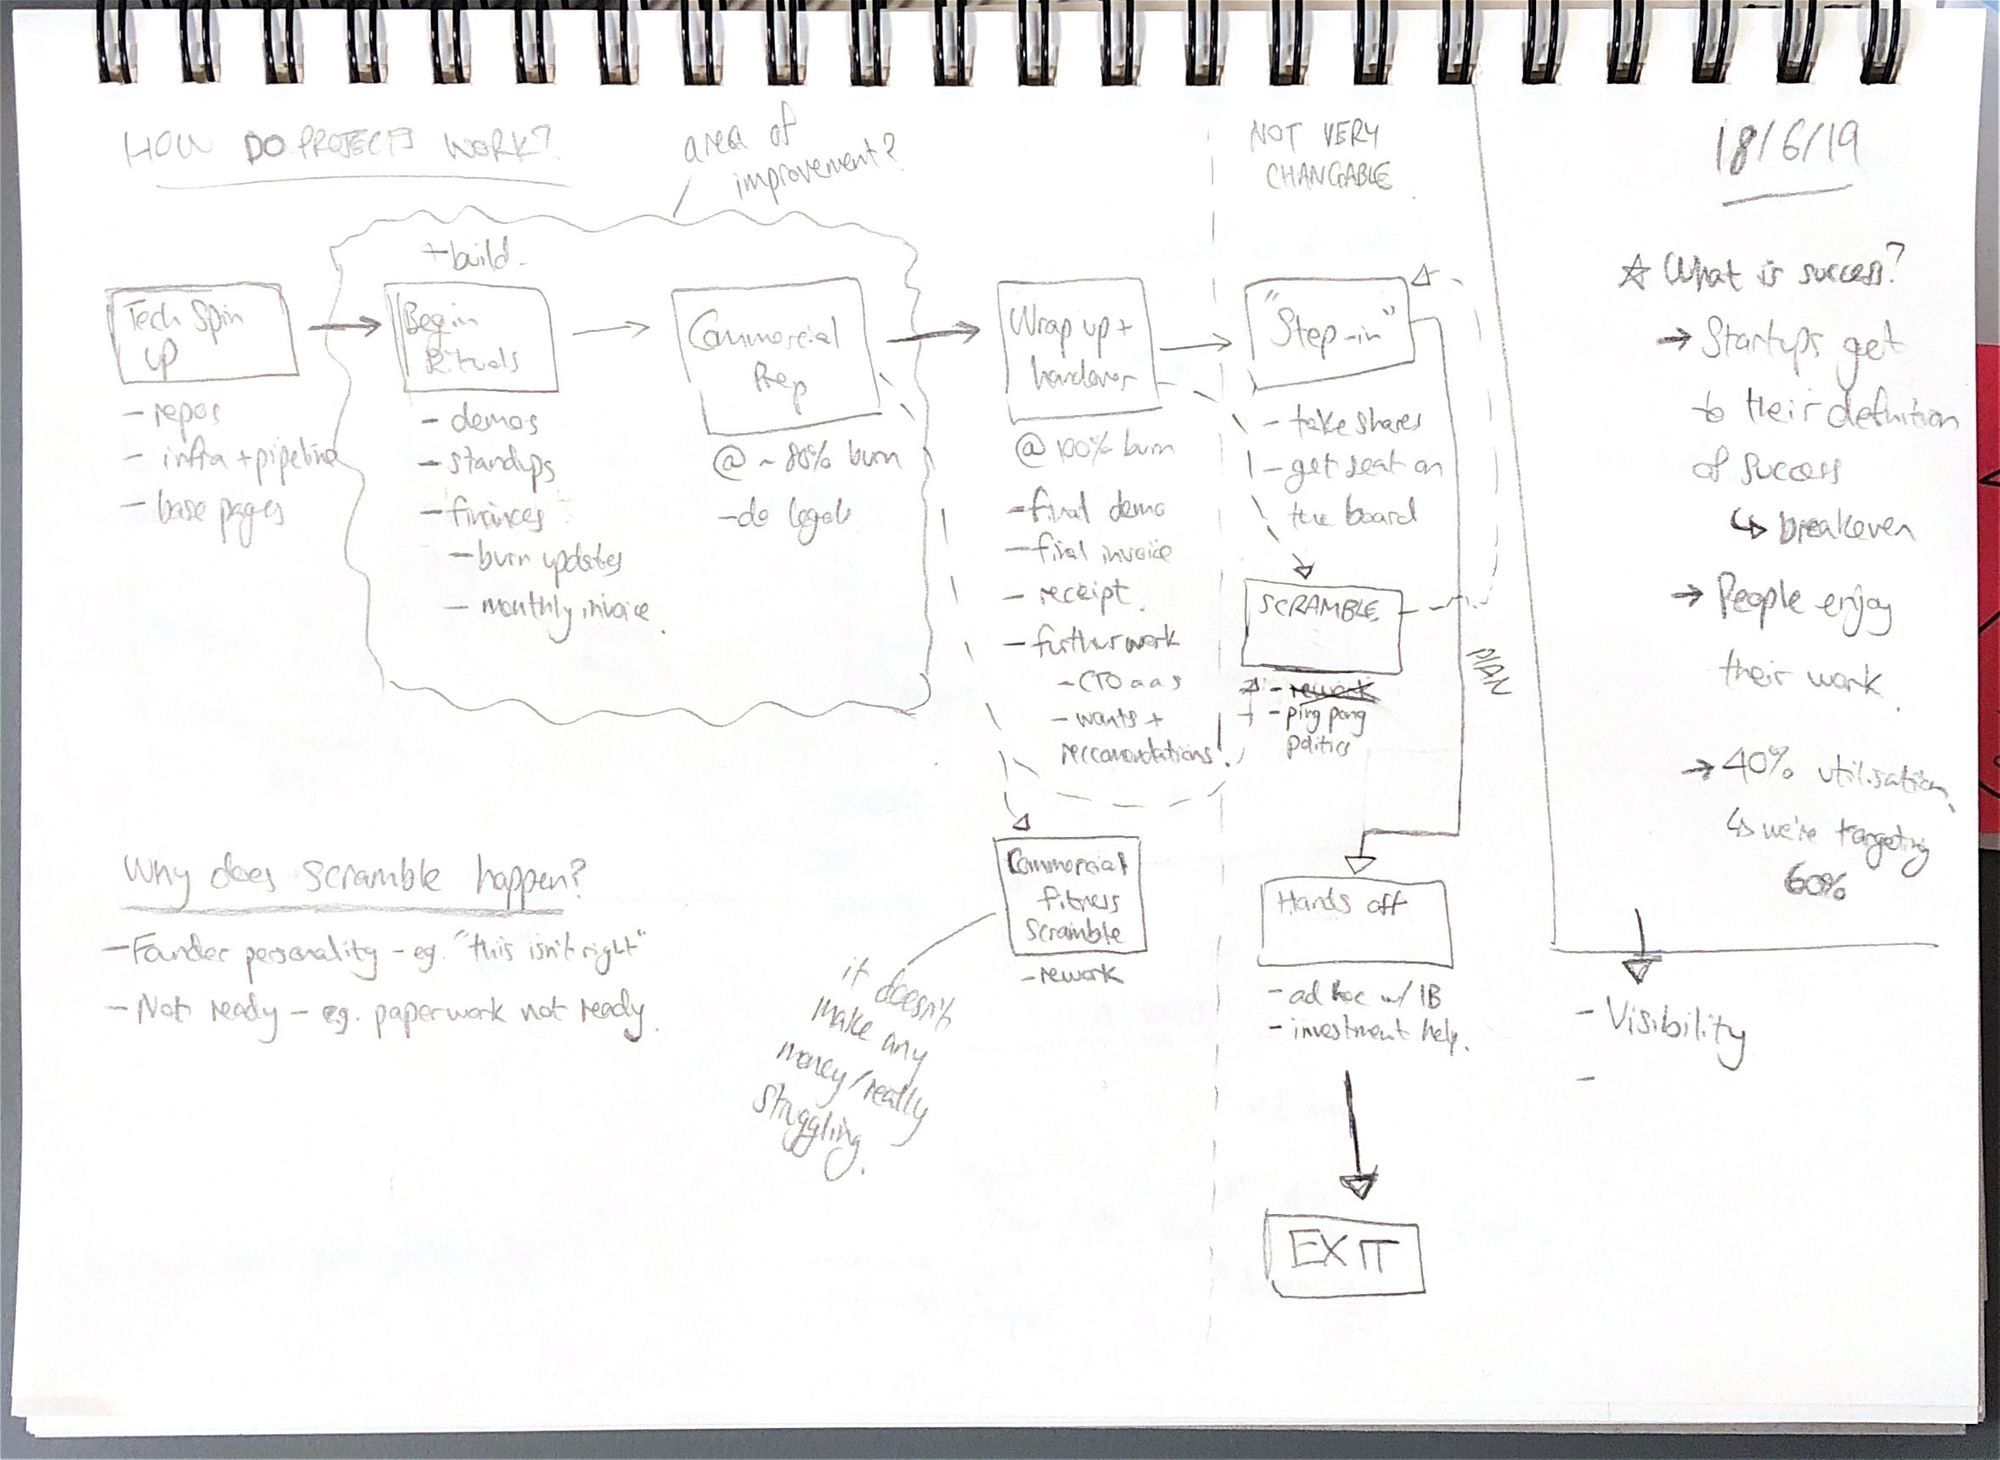 HOW DO PROJECTS WORK?
area of
improvement?
NOT VERY
CHANGABLE
18/6/19
+ build
Tech Spin
up
- repos
- infra + pipeline
- base pages
Begin
Rituals
- demos
- standups
- finances
- burn updates
- monthly invoice.
Commercial
Prep
@ ~ 80% burn
- do legals
Wrap up +
handover
@ 100% burn
- final demo
- final invoice
- receipt.
- further work
- CTO a a S
- wants +
reccomendations.
"Step-in"
- take shares
- get seat on
the board
SCRAMBLE
- rework
- ping pong
politics
PLAN
Commercial
fitness
scramble
- rework
it doesn't
make any
money/really
struggling.
Hands off
- ad hoc w/ IB
- investment help.
EXIT
Why does scramble happen?
- Founder personality - eg. "this isn't right"
- Not ready - eg. paperwork not ready.
☆ What is success?
→ Startups get
to their definition
of success
↳ breakeven
→ People enjoy
their work.
→ 40% utilisation,
↳ we're targeting
60%
- Visibility
-